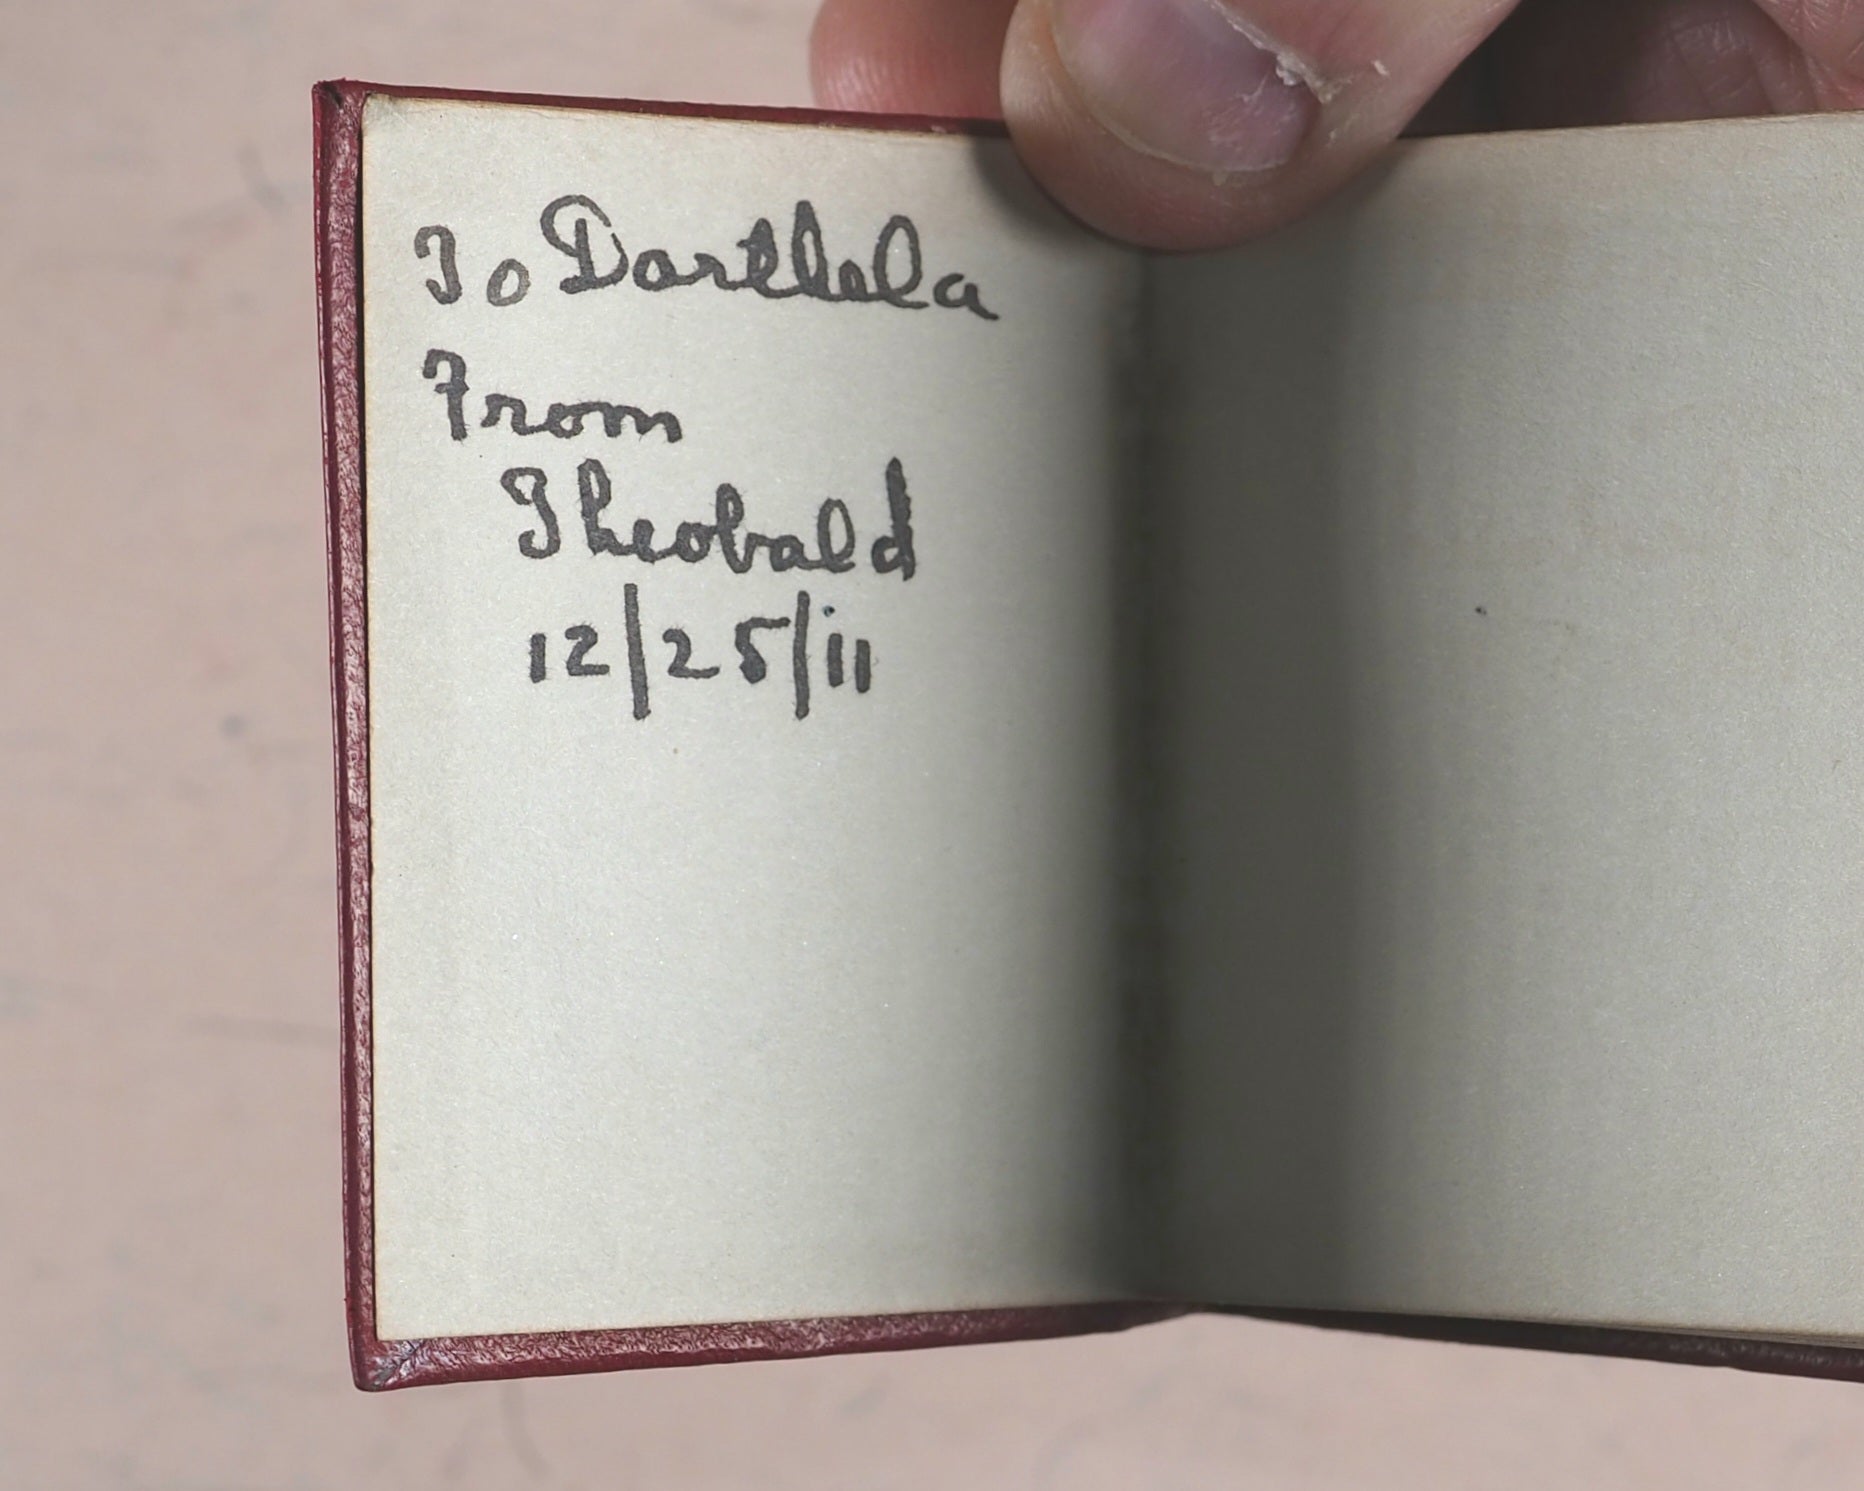 To Darthela
From
Theobald
12/25/11